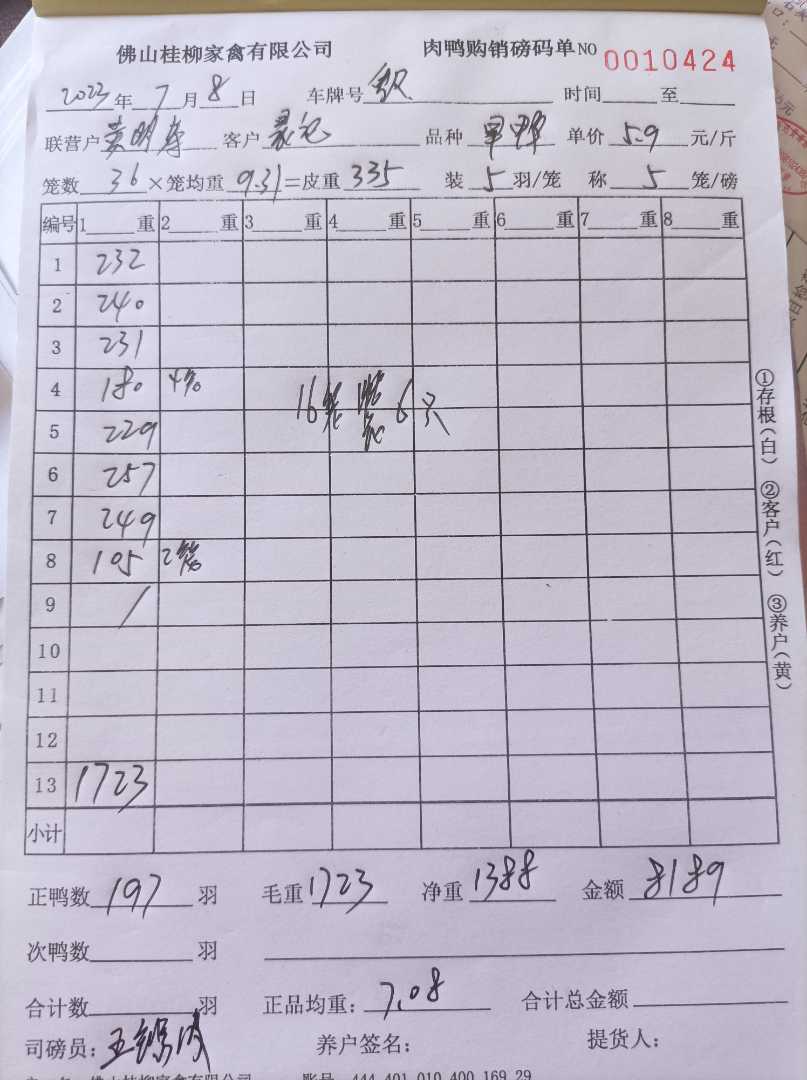 佛山桂柳家禽有限公司 肉鸭购销磅码单 NO 0010424
2023年7月8日 车牌号 时间 至
联营户 黄明寿 客户 品种 单价 5.9 元/斤
笼数 36 ×笼均重 9.31 =皮重 335 装 5 羽/笼 称 5 笼/磅
编号 1 重 2 重 3 重 4 重 5 重 6 重 7 重 8 重
1 232
2 240
3 231
4 180 4笼
5 229
6 257
7 249
8 105 2笼
16笼 6只
9 /
10
11
12
13 1723
小计
①存根(白) ②客户(红) ③养户(黄)
正鸭数 197 羽 毛重 1723 净重 1388 金额 8189
次鸭数 羽
合计数 羽 正品均重: 7.08 合计总金额
司磅员: 养户签名: 提货人:
佛山桂柳家禽有限公司 账号 444 401 010 400 169 29